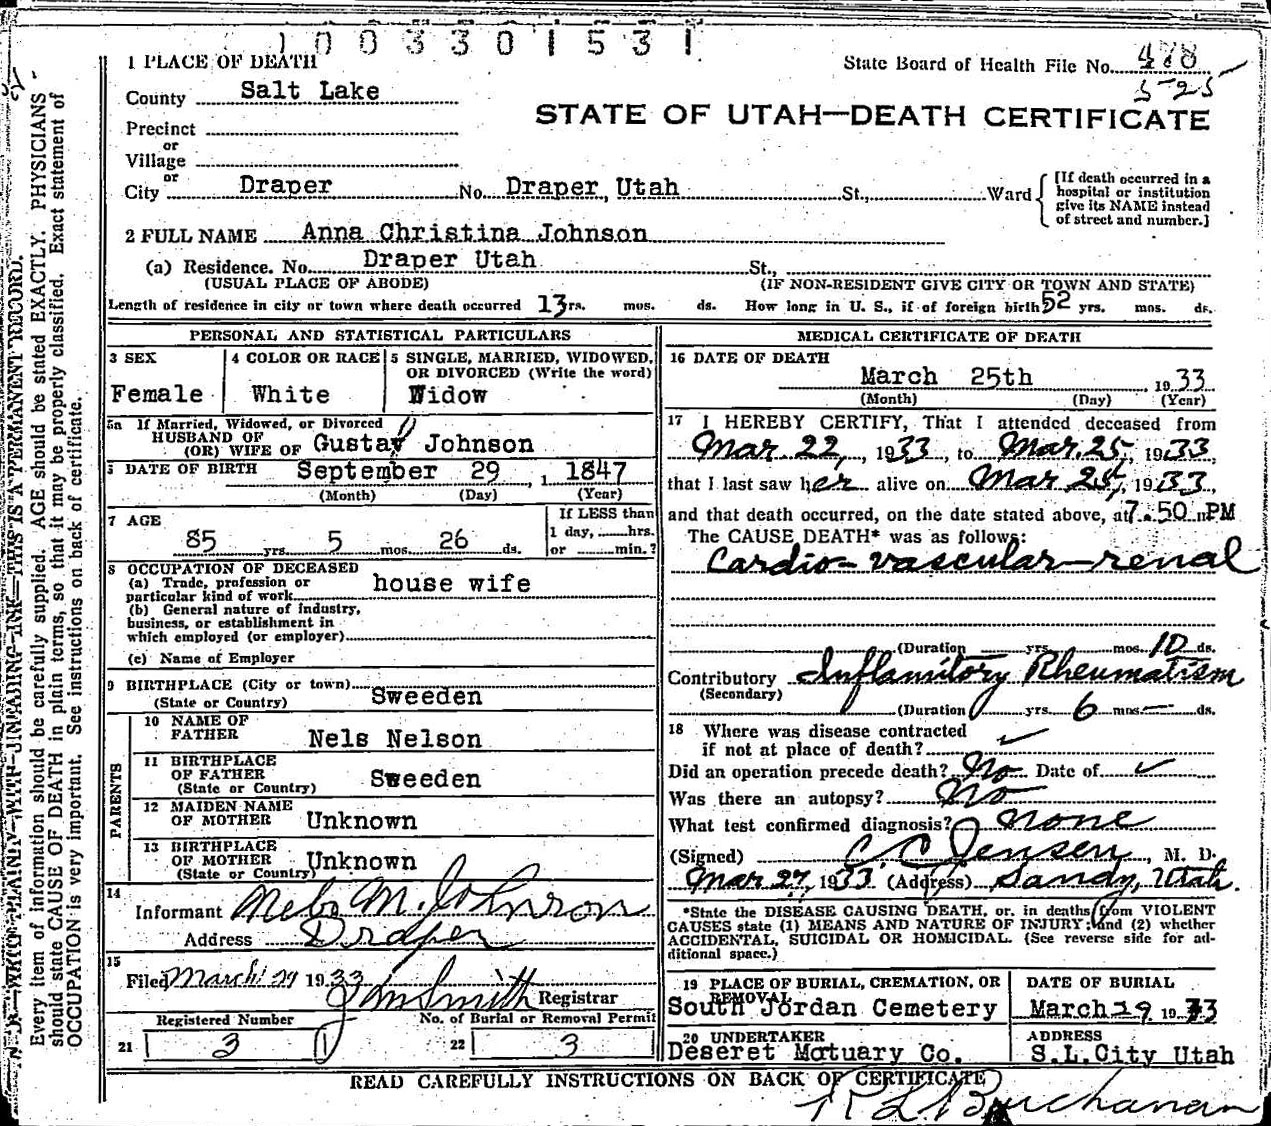 1003301531
1 PLACE OF DEATH
State Board of Health File No. 478
5-25
County Salt Lake
STATE OF UTAH—DEATH CERTIFICATE
Precinct
or
Village
or
City Draper No. Draper, Utah St., Ward
[If death occurred in a
hospital or institution
give its NAME instead
of street and number.]
2 FULL NAME Anna Christina Johnson
(a) Residence. No. Draper Utah St.,
(USUAL PLACE OF ABODE) (IF NON-RESIDENT GIVE CITY OR TOWN AND STATE)
Length of residence in city or town where death occurred 13rs. mos. ds. How long in U. S., if of foreign birth 52 yrs. mos. ds.
PERSONAL AND STATISTICAL PARTICULARS
3 SEX
Female
4 COLOR OR RACE
White
5 SINGLE, MARRIED, WIDOWED,
OR DIVORCED (Write the word)
Widow
5a If Married, Widowed, or Divorced
HUSBAND OF
(OR) WIFE OF Gustav Johnson
DATE OF BIRTH September 29, 1847
(Month) (Day) (Year)
7 AGE
85 yrs. 5 mos. 26 ds.
If LESS than
1 day, hrs.
or min.?
8 OCCUPATION OF DECEASED
(a) Trade, profession or
particular kind of work house wife
(b) General nature of industry,
business, or establishment in
which employed (or employer)
(c) Name of Employer
9 BIRTHPLACE (City or town)
(State or Country) Sweeden
PARENTS
10 NAME OF
FATHER Nels Nelson
11 BIRTHPLACE
OF FATHER
(State or Country) Sweeden
12 MAIDEN NAME
OF MOTHER Unknown
13 BIRTHPLACE
OF MOTHER
(State or Country) Unknown
14
Informant Nels M. Johnson
Address Draper
15
Filed March 29 1933
Jm Smith Registrar
Registered Number No. of Burial or Removal Permit
21 3 1 22 3
MEDICAL CERTIFICATE OF DEATH
16 DATE OF DEATH
March 25th, 1933
(Month) (Day) (Year)
17 I HEREBY CERTIFY, That I attended deceased from
Mar 22, 1933, to Mar. 25, 1933,
that I last saw her alive on Mar 25, 1933,
and that death occurred, on the date stated above, at 7.50 PM
The CAUSE DEATH* was as follows:
Cardio-vascular-renal
(Duration yrs. mos. 10 ds.
Contributory Inflamitory Rheumatism
(Secondary)
(Duration yrs. 6 mos. — ds.
18 Where was disease contracted
if not at place of death?
Did an operation precede death? No Date of
Was there an autopsy? No
What test confirmed diagnosis? none
(Signed) C. C. Jensen, M. D.
Mar 27, 1933 (Address) Sandy, Utah.
*State the DISEASE CAUSING DEATH, or, in deaths from VIOLENT
CAUSES state (1) MEANS AND NATURE OF INJURY; and (2) whether
ACCIDENTAL, SUICIDAL OR HOMICIDAL. (See reverse side for ad-
ditional space.)
19 PLACE OF BURIAL, CREMATION, OR
REMOVAL
South Jordan Cemetery
DATE OF BURIAL
March 29 1933
20 UNDERTAKER
Deseret Motuary Co.
ADDRESS
S.L.City Utah
READ CAREFULLY INSTRUCTIONS ON BACK OF CERTIFICATE
Buchanan
N. B.—WRITE PLAINLY WITH UNFADING INK—THIS IS A PERMANENT RECORD.
Every item of information should be carefully supplied. AGE should be stated EXACTLY. PHYSICIANS
should state CAUSE OF DEATH in plain terms, so that it may be properly classified. Exact statement of
OCCUPATION is very important. See instructions on back of certificate.